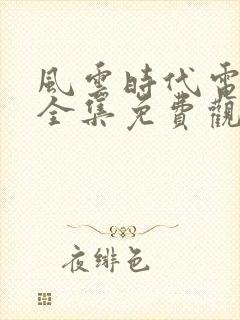 風雲時代電
全集免費觀
夜緋色